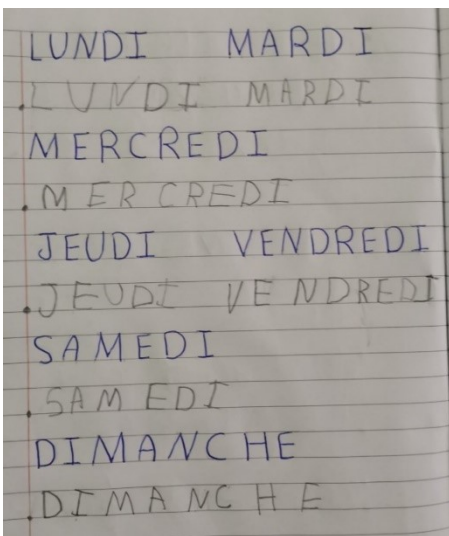 LUNDI MARDI
LUNDI MARDI
MERCREDI
MERCREDI
JEUDI VENDREDI
JEUDI VENDREDI
SAMEDI
SAMEDI
DIMANCHE
DIMANCHE